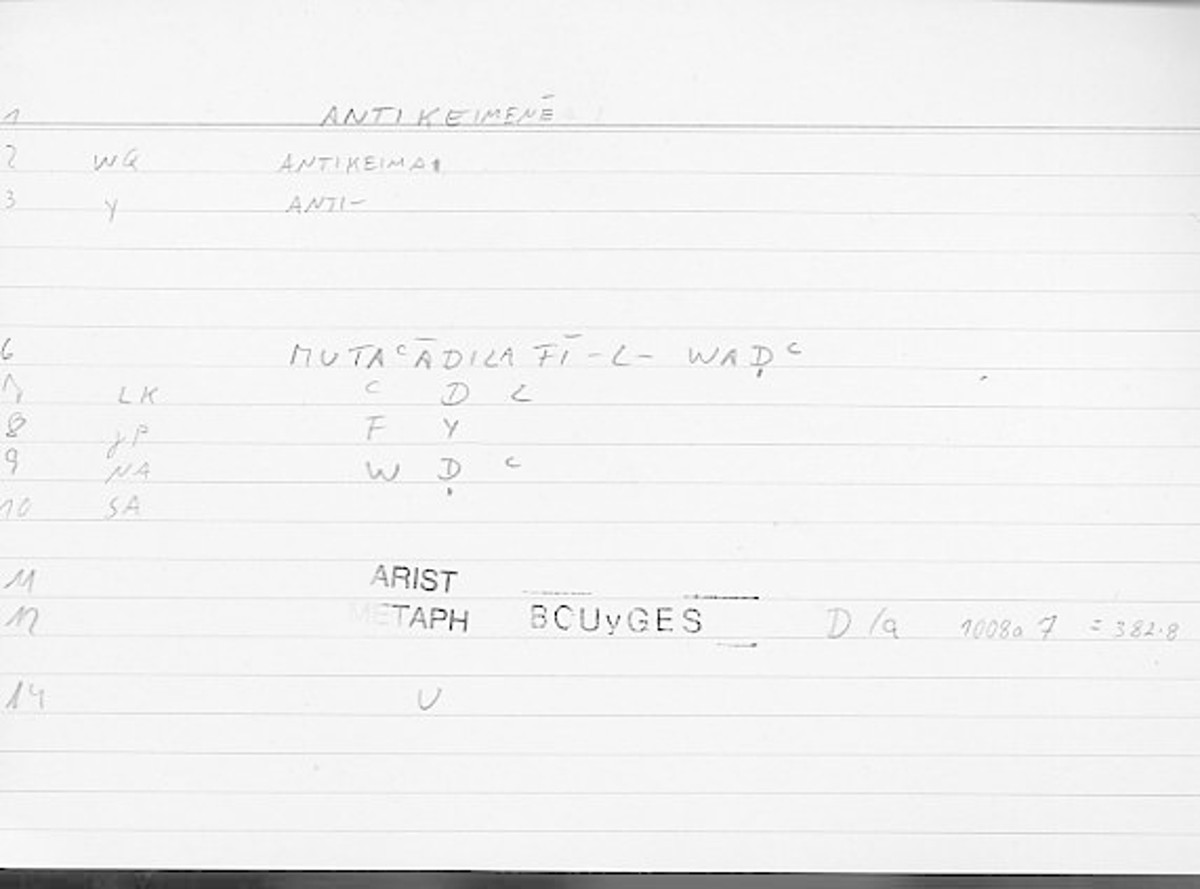 1 ANTIKEIMENĒ
2 WG ANTIKEIMAI
3 Y ANTI-
6 MUTAᶜĀDILA FĪ-L-WAḌᶜ
7 LK ᶜ D L
8 JP F Y
9 NA W Ḍ ᶜ
10 SA
11 ARIST
12 METAPH BCUyGES D/a 1008a 7 = 382.8
14 U